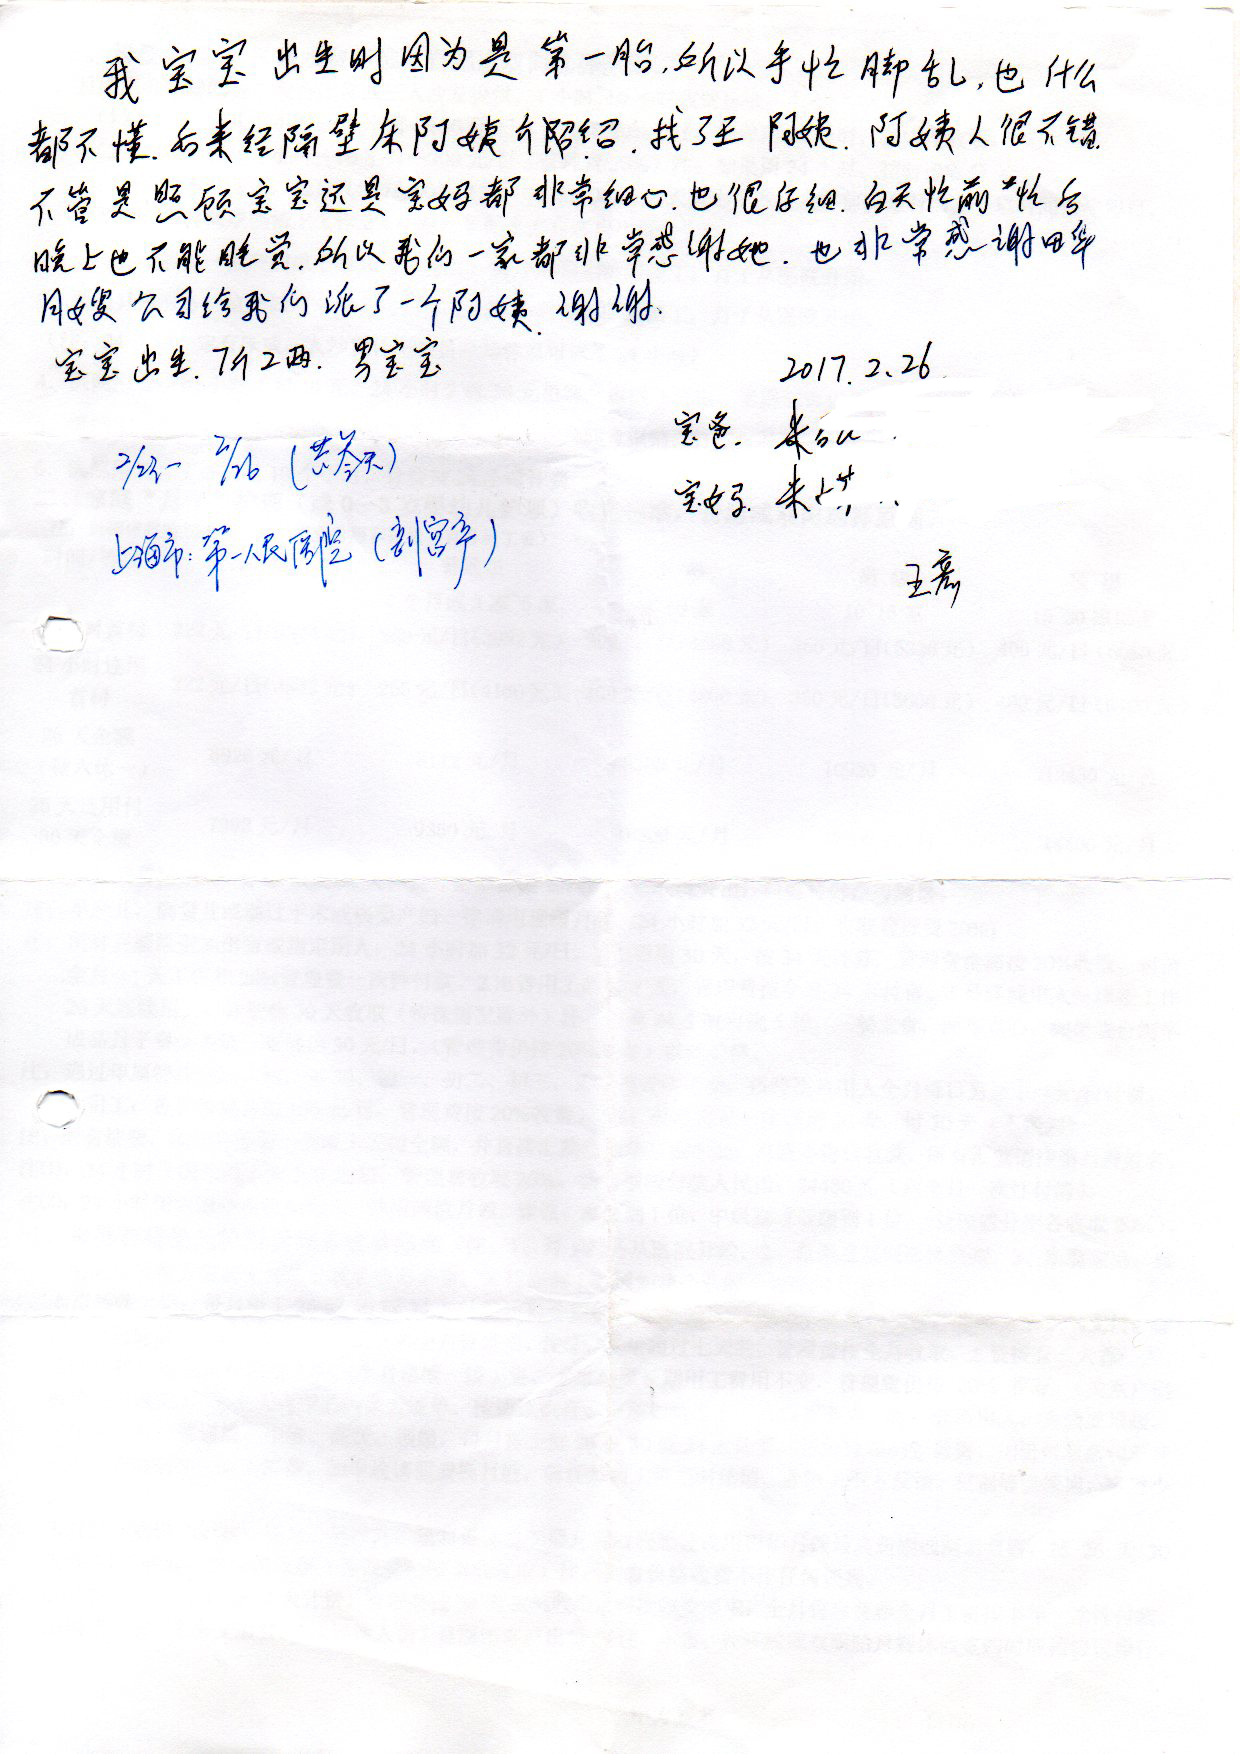 我宝宝出生时因为是第一胎.所以手忙脚乱.也什么
都不懂.后来经隔壁床阿姨介绍.找了王阿姨.阿姨人很不错.
不管是照顾宝宝还是宝妈都非常细心.也很仔细.白天忙前忙后
晚上也不能睡觉.所以我们一家都非常感谢她.也非常感谢田华
月嫂公司给我们派了一个阿姨.谢谢.
宝宝出生.7斤2两.男宝宝
2017.2.26
宝爸.朱
宝妈.朱
2/26
上海市:第一人民医院(剖宫产)
王